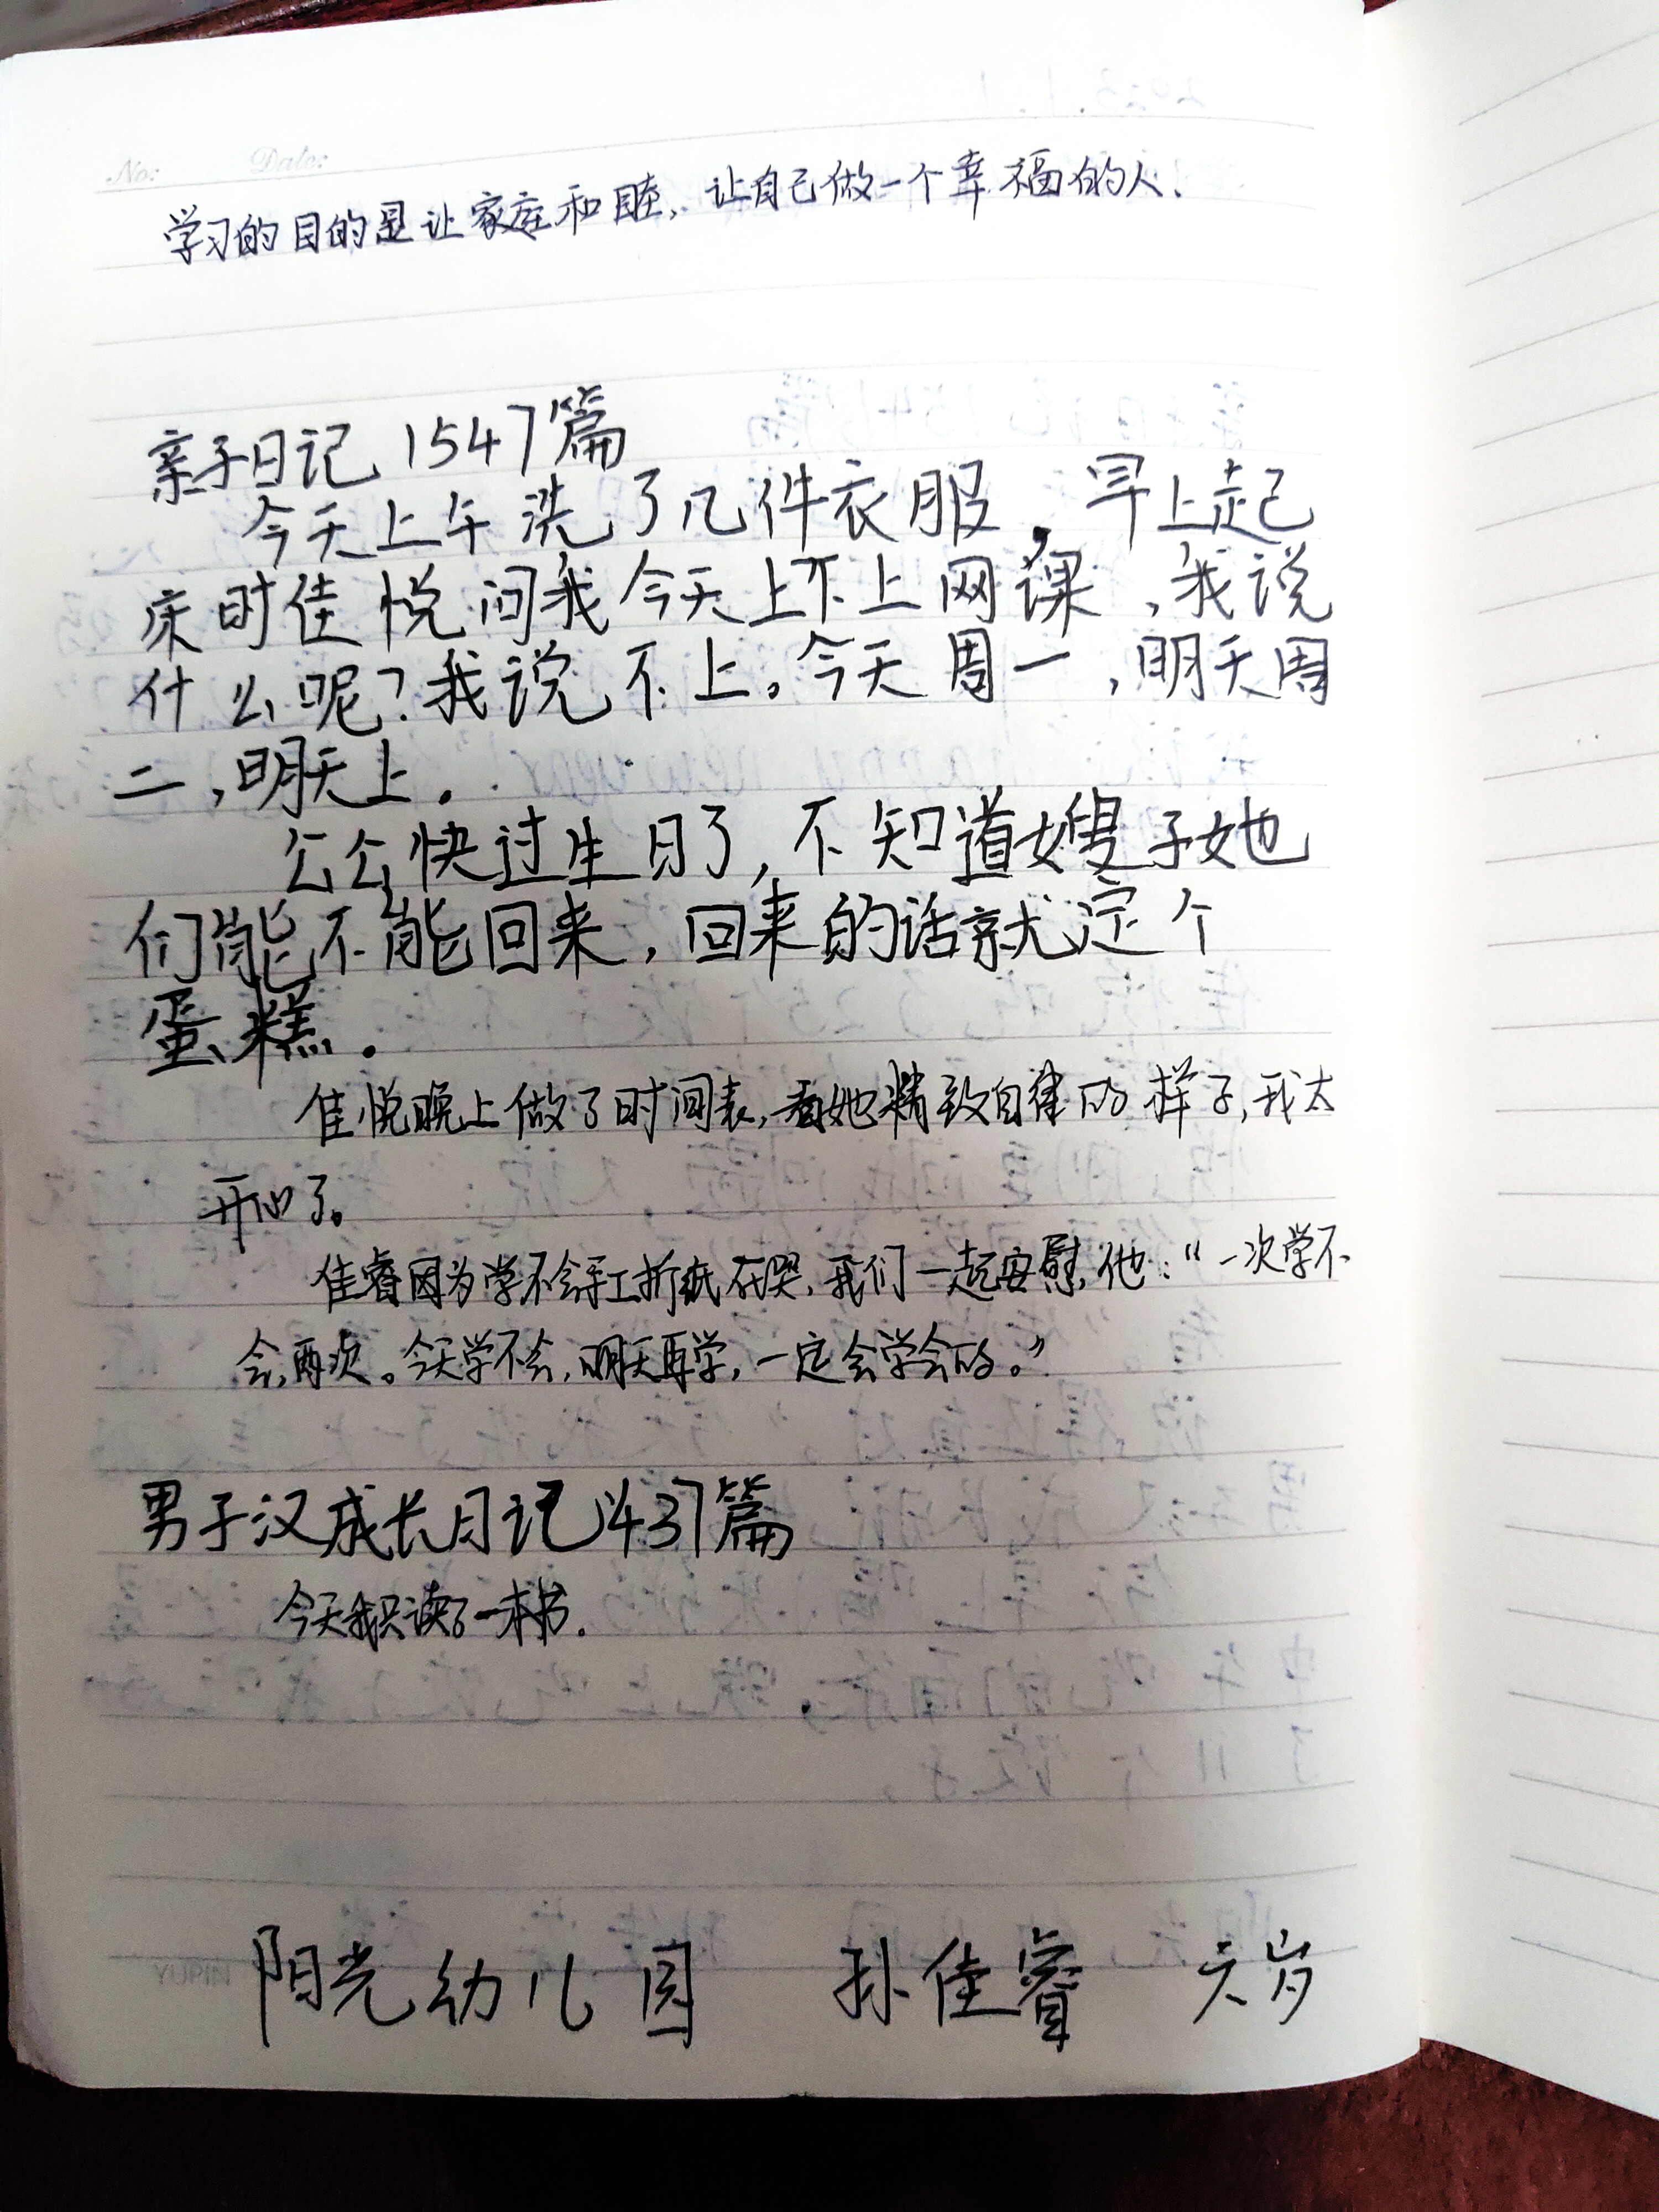 No: Date:
学习的目的是让家庭和睦，让自己做一个幸福的人、
亲子日记 1547篇
今天上午洗了几件衣服，早上起
床时佳悦问我今天上不上网课，我说
什么呢？我说不上。今天周一，明天周
二，明天上．
公公快过生日了，不知道嫂子她
们能不能回来，回来的话就定个
蛋糕．
佳悦晚上做了时间表，看她精致自律的样子，我太
开心了。
佳睿因为学不会手工折纸在哭，我们一起安慰他：“一次学不
会，再次。今天学不会，明天再学，一定会学会的。”
男子汉成长日记1437篇
今天我只读了一本书．
阳光幼儿园 孙佳睿 六岁
YUPIN